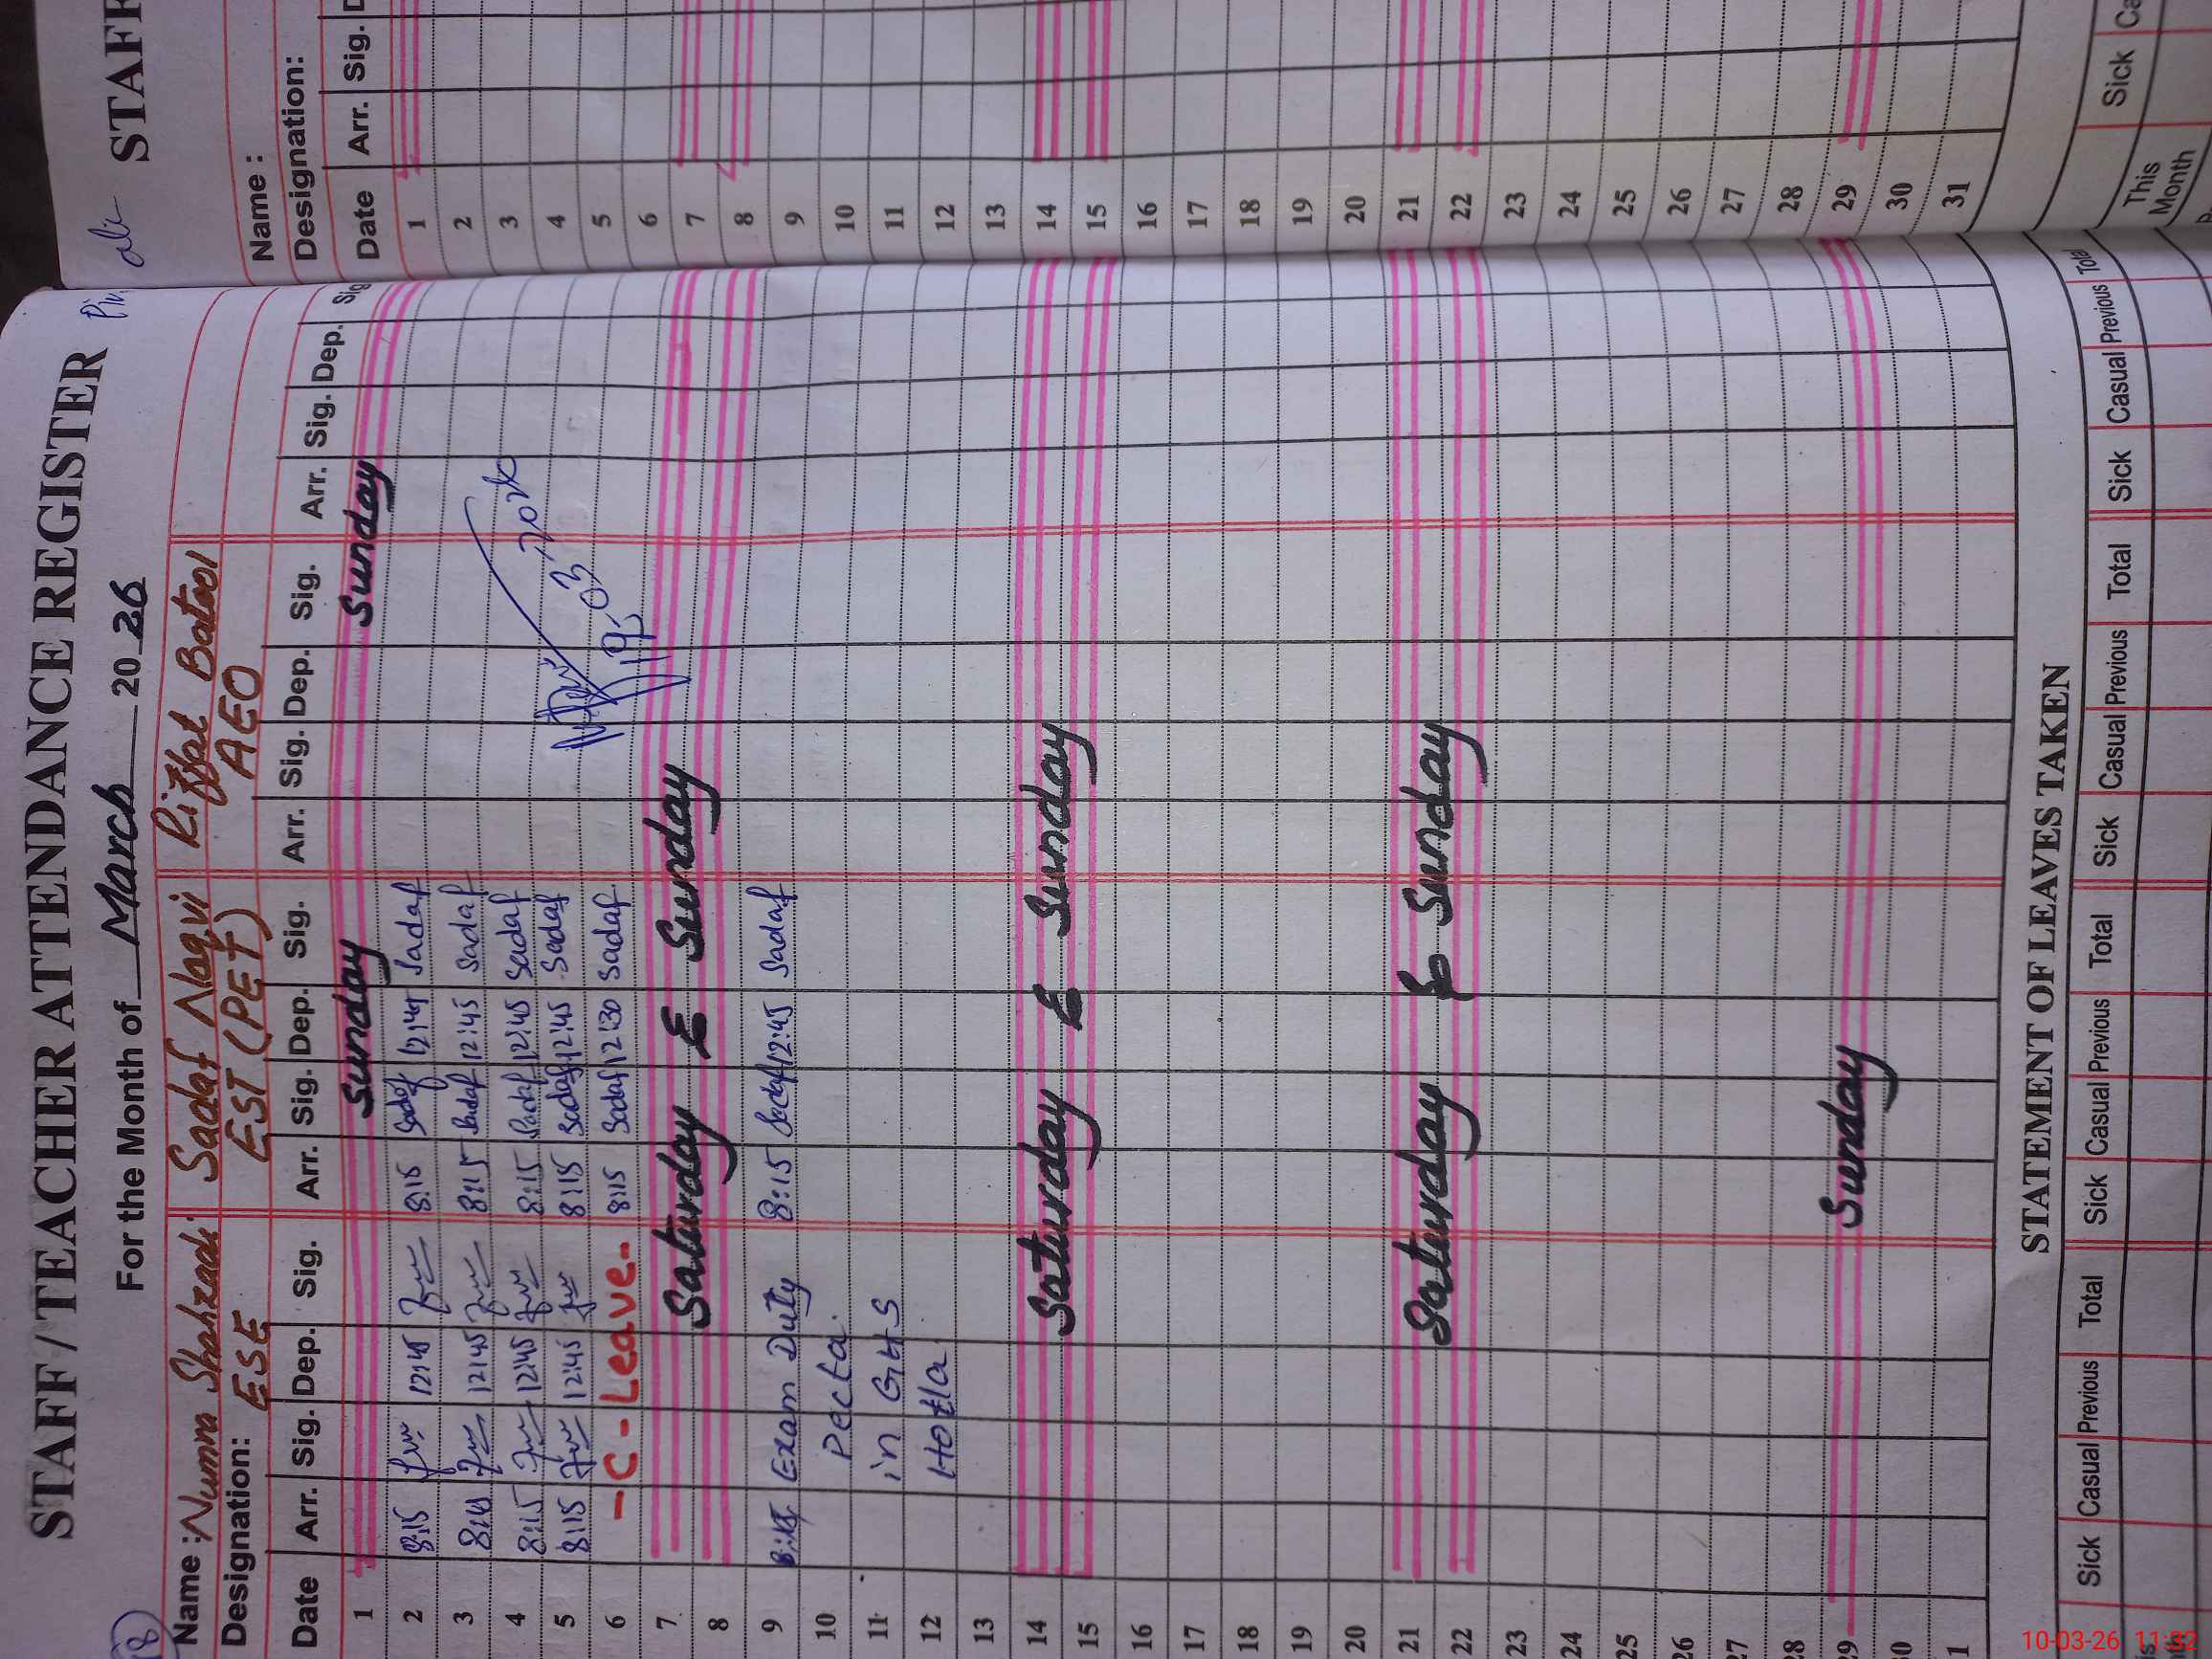 STAFF / TEACHER ATTENDANCE REGISTER
18
For the Month of March 2026
Name : Numra Shahzadi Sadaf Naqvi Riffat Batool
Designation: ESE EST (PET) AEO
Date Arr. Sig. Dep. Sig. Arr. Sig. Dep. Sig. Arr. Sig. Dep. Sig. Arr. Sig. Dep. Sig
1 Sunday Sunday
2 8:15 12:45 8:15 Sadaf 12:45 Sadaf
3 12:45 8:15 Sadaf 12:45 Sadaf
4 8:15 12:45 8:15 Sadaf 12:45 Sadaf
5 8:15 12:45 8:15 Sadaf 12:45 Sadaf
6 - C - Leave. 8:15 Sadaf 12:30 Sadaf
7 Saturday & Sunday
8
9 Exam Duty 8:15 Sadaf 12:45 Sadaf
10 Pecta
11 in GHS
12 Hotla
13
14 Saturday & Sunday
15
16
17
18
19
20
21 Saturday & Sunday
22
23
24
25
26
27
28
29 Sunday
30
1
STATEMENT OF LEAVES TAKEN
Sick Casual Previous Total Sick Casual Previous Total Sick Casual Previous Total Sick Casual Previous Total
STAFF
Name :
Designation:
Date Arr. Sig.
1
2
3
4
5
6
7
8
9
10
11
12
13
14
15
16
17
18
19
20
21
22
23
24
25
26
27
28
29
30
31
This Month
Sick Ca
10-03-26 11:32